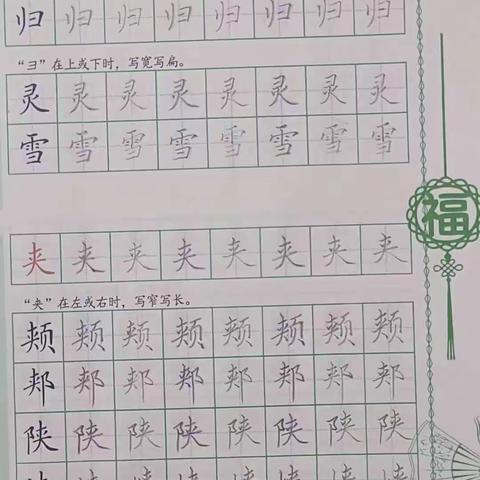 归归归归归归归归
“彐”在上或下时，写宽写扁。
灵灵灵灵灵灵灵灵
雪雪雪雪雪雪雪雪
福
夹夹夹夹夹夹夹夹
“夹”在左或右时，写窄写长。
颊颊颊颊颊颊颊颊
郏郏郏郏郏郏郏郏
陕陕陕陕陕陕陕陕